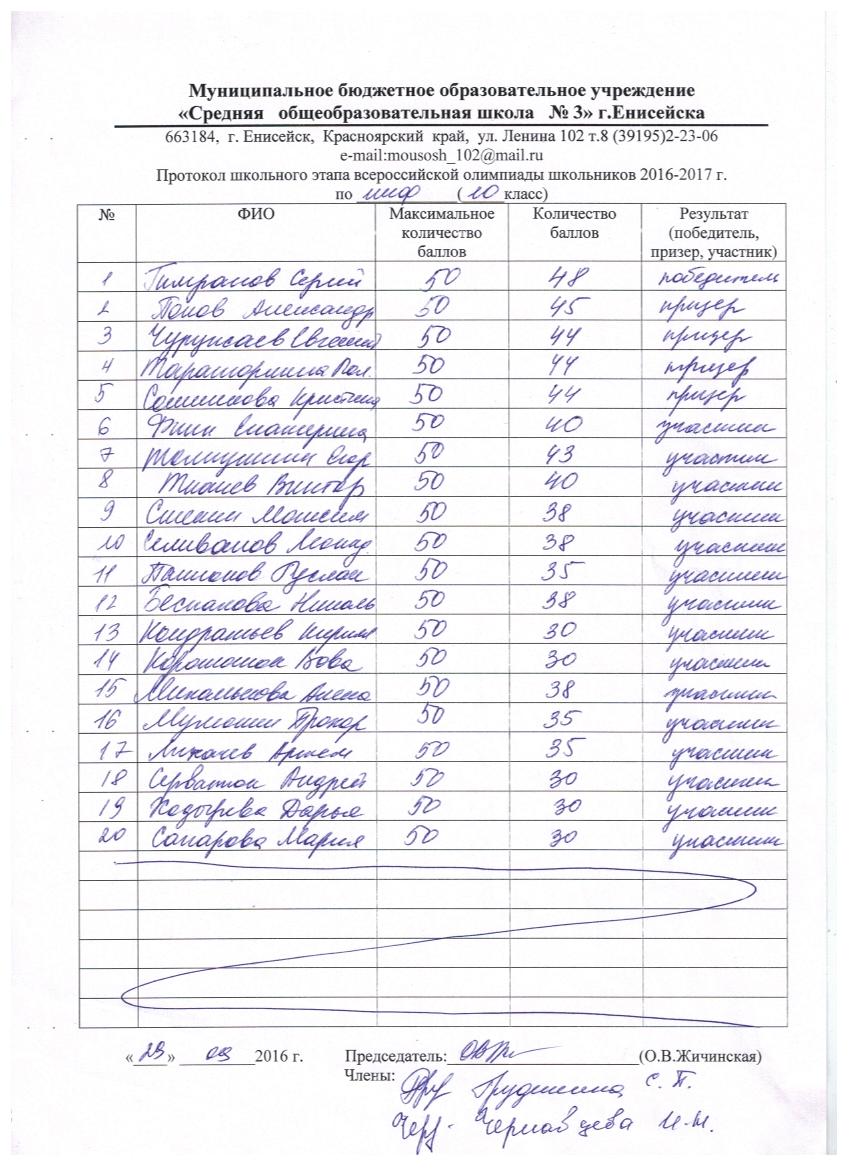 Муниципальное бюджетное образовательное учреждение
«Средняя общеобразовательная школа № 3» г.Енисейска
663184, г. Енисейск, Красноярский край, ул. Ленина 102 т.8 (39195)2-23-06
e-mail:mousosh_102@mail.ru
Протокол школьного этапа всероссийской олимпиады школьников 2016-2017 г.
по инф (10 класс)
№ ФИО Максимальное количество баллов Количество баллов Результат (победитель, призер, участник)
1 Тимранов Сергей 50 48 победитель
2 Попов Александр 50 45 призер
3 Евгений 50 44 призер
4 Пол. 50 44 призер
5 Кристина 50 44 призер
6 Финк Екатерина 50 40 участник
7 Егор 50 43 участник
8 Виктор 50 40 участник
9 Максим 50 38 участник
10 Селиванов Леонид 50 38 участник
11 Руслан 50 35 участник
12 Беспалова Николь 50 38 участник
13 Кондратьев Кирилл 50 30 участник
14 Вова 50 30 участник
15 Михалькова Алена 50 38 участник
16 Прохор 50 35 участник
17 Лихачев Артем 50 35 участник
18 Серватюк Андрей 50 30 участник
19 Дарья 50 30 участник
20 Сапарова Мария 50 30 участник
«29» 09 2016 г. Председатель: (О.В.Жичинская)
Члены: С. П.
И.Н.